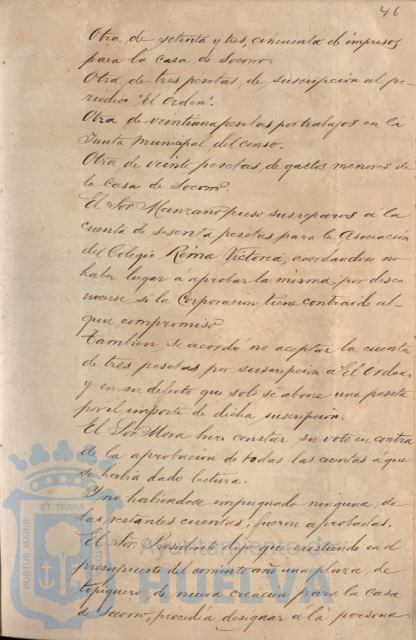 46
Otra de setenta y tres, cincuenta de impresos
para la Casa de Socorro.
Otra de tres pesetas, de suscripción al pe-
riodico "El Orden".
Otra de veintiuna pesetas por trabajos en la
Junta Municipal del censo.
Otra de veinte pesetas, de gastos menores de
la Casa de Socorro.
El Sor. Manzano puso sus reparos á la
cuenta de sesenta pesetas para la Asociación
del Colegio Reina Victoria, acordandose no
haber lugar á aprobar la misma, por desco
nocerse si la Corporación tiene contraido al-
gun compromiso.
Tambien se acordó no aceptar la cuenta
de tres pesetas por suscripción a "El Orden",
y en su defecto que solo se abone una peseta
por el importe de dicha suscripción.
El Sor. Mora hizo constar su voto en contra
de la aprobación de todas las cuentas á que
se habia dado lectura.
Y no habiendose impugnado ninguna, de
las restantes cuentas, fueron aprobadas.
El Sor. Presidente dijo que existiendo en el
presupuesto del corriente año una plaza de
topiquero de nueva creación para la Casa
de Socorro, procedia designar a la persona
PORTUS MARIS
ET TERRAE
Ayuntamiento de
HUELVA